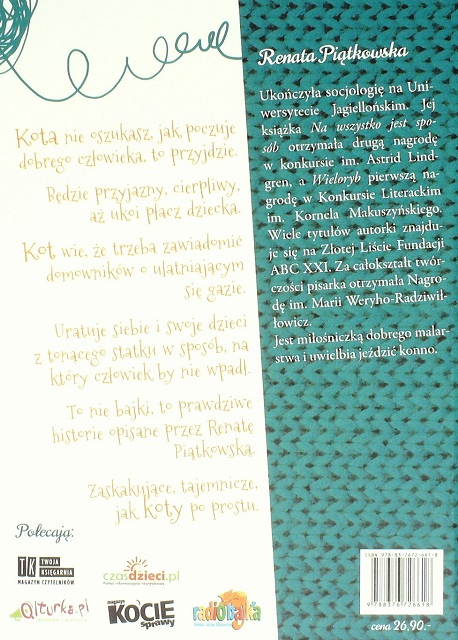 Kota nie oszukasz, jak poczuje
dobrego człowieka, to przyjdzie.
Będzie przyjazny, cierpliwy,
aż ukoi płacz dziecka.
Kot wie, że trzeba zawiadomić
domowników o ulatniającym
się gazie.
Uratuje siebie i swoje dzieci
z tonącego statku w sposób, na
który człowiek by nie wpadł.
To nie bajki, to prawdziwe
historie opisane przez Renatę
Piątkowską.
Zaskakujące, tajemnicze,
jak koty po prostu.
Polecają:
TK TWOJA
KSIĘGARNIA
MAGAZYN CZYTELNIKÓW
czasdzieci.pl
Qlturka.pl
magazyn
KOCIE
sprawy
radiobajka
Renata Piątkowska
Ukończyła socjologię na Uni-
wersytecie Jagiellońskim. Jej
książka Na wszystko jest spo-
sób otrzymała drugą nagrodę
w konkursie im. Astrid Lind-
gren, a Wieloryb pierwszą na-
grodę w Konkursie Literackim
im. Kornela Makuszyńskiego.
Wiele tytułów autorki znajdu-
je się na Złotej Liście Fundacji
ABC XXI. Za całokształt twór-
czości pisarka otrzymała Nagro-
dę im. Marii Weryho-Radziwił-
łowicz.
Jest miłośniczką dobrego malar-
stwa i uwielbia jeździć konno.
ISBN 978-83-7672-661-8
9788376726618
cena 26,90.-